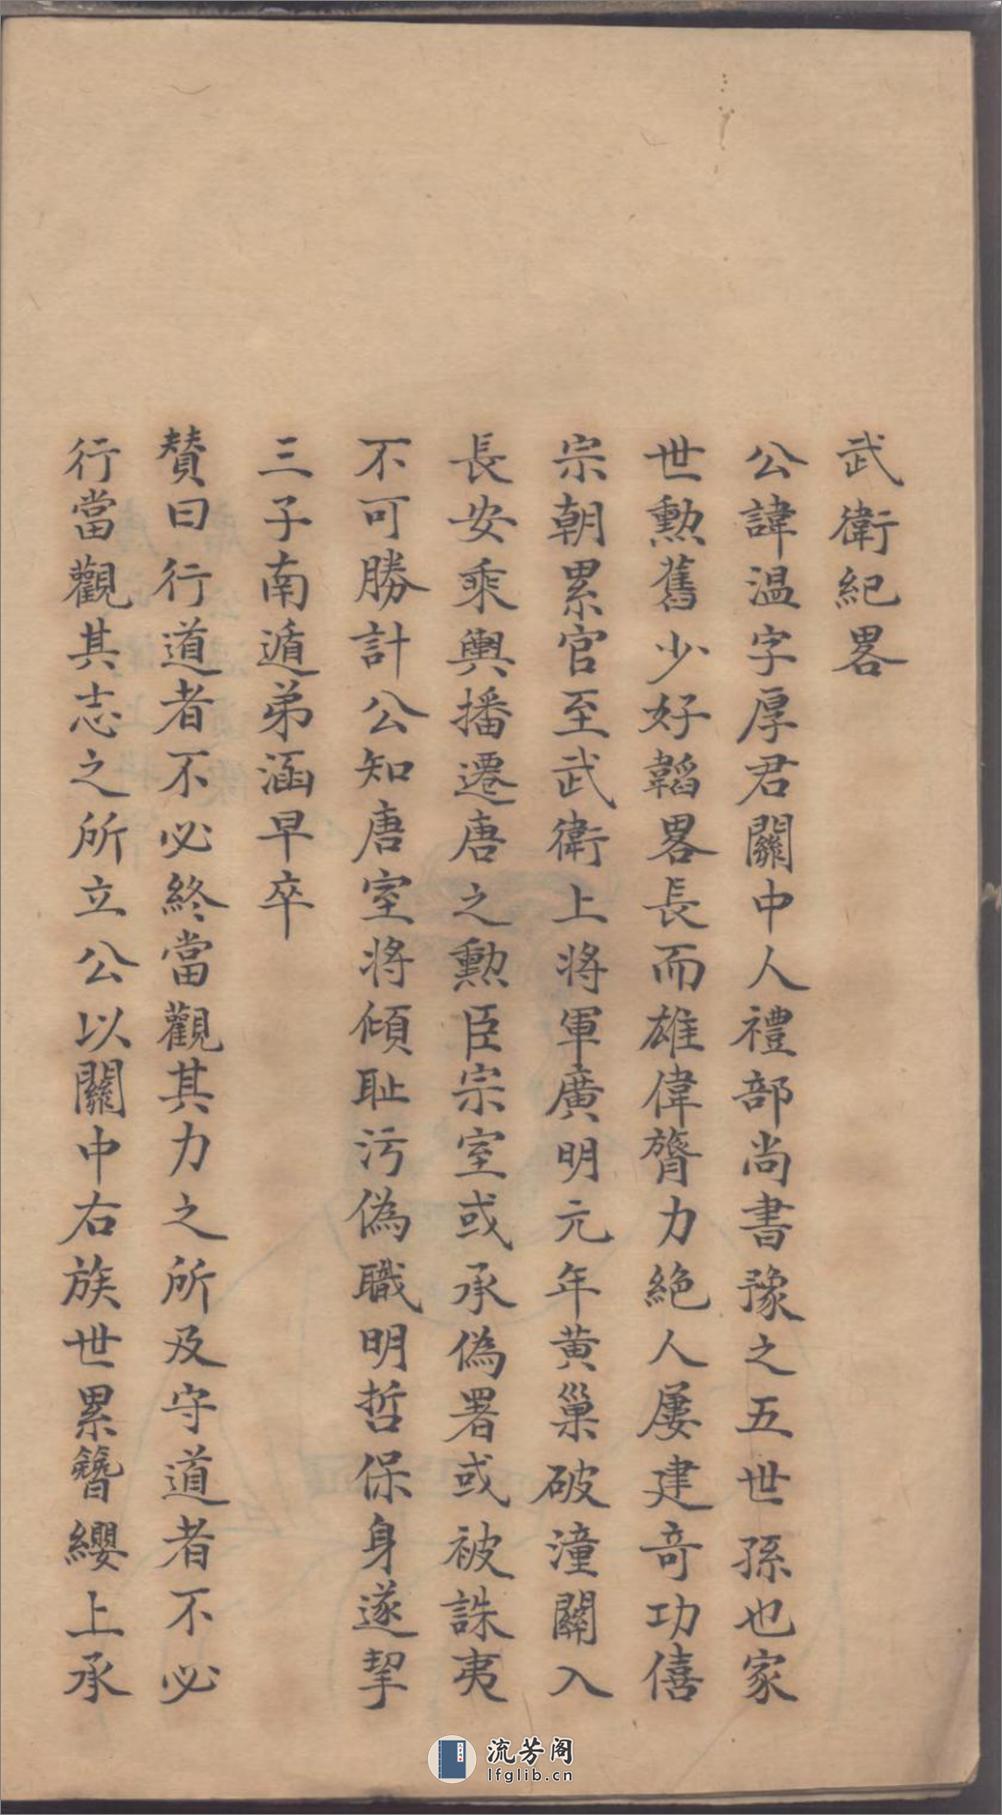 武衛紀畧
公諱温字厚君關中人禮部尚書豫之五世孫也家
世勲舊少好韜畧長而雄偉膂力絶人屢建奇功僖
宗朝累官至武衛上將軍廣明元年黄巢破潼關入
長安乘輿播遷唐之勲臣宗室或承偽署或被誅夷
不可勝計公知唐室將傾耻污偽職明哲保身遂挈
三子南遁弟涵早卒
賛曰行道者不必終當觀其力之所及守道者不必
行當觀其志之所立公以關中右族世累簪纓上承
流芳阁
lfglib.cn